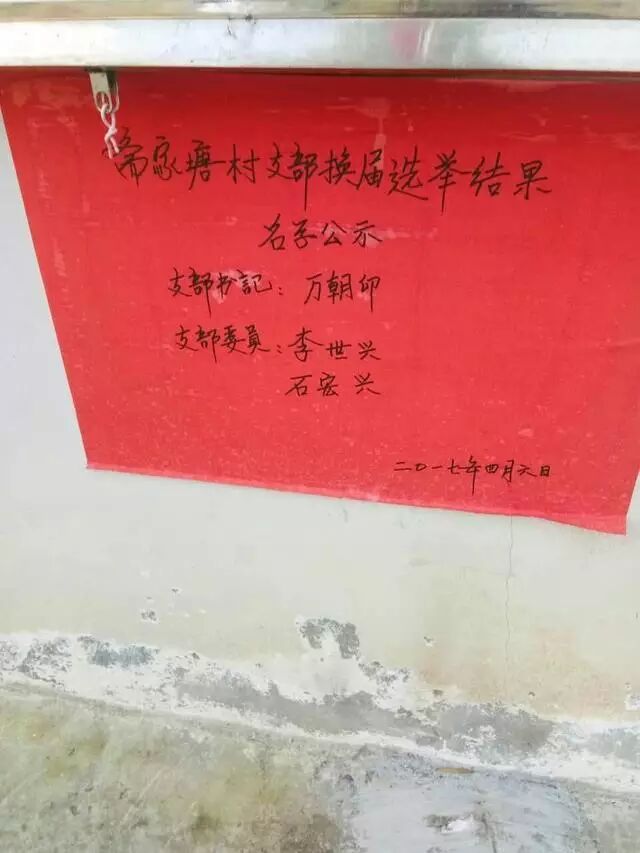 家塘村支部换届选举结果
名字公示
支部书記：万朝仰
支部委員：李世兴
石宏兴
二〇一七年四月六日